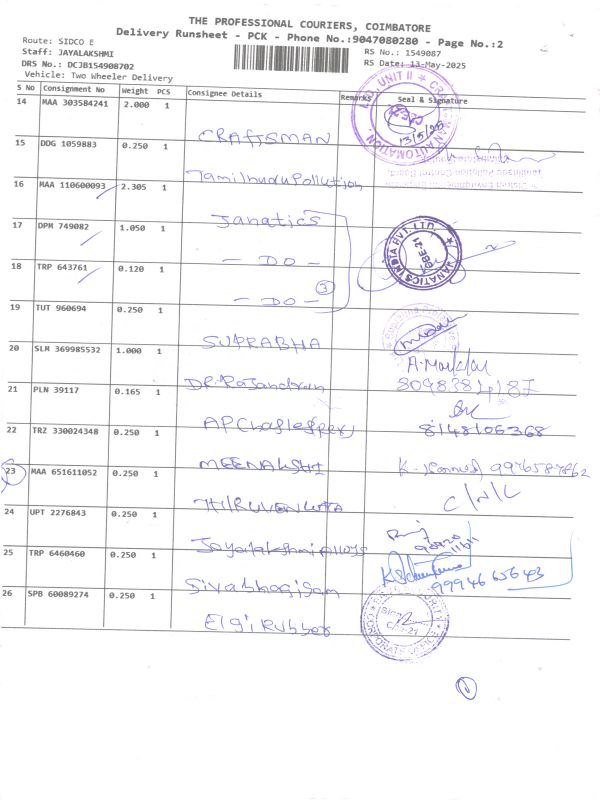 THE PROFESSIONAL COURIERS, COIMBATORE
Delivery Runsheet - PCK - Phone No.:9047080280 - Page No.:2
Route: SIDCO E
RS No.: 1549087
Staff: JAYALAKSHMI
RS Date: 13-May-2025
DRS No.: DCJB154908702
Vehicle: Two Wheeler Delivery
S No Consignment No Weight PCS Consignee Details Remarks Seal & Signature
14 MAA 303584241 2.000 1 CRAFTSMAN 13/5/25
15 DDG 1059883 0.250 1 Tamilnadu Pollution
16 MAA 110600093 2.305 1 Janatics
17 DPM 749082 1.050 1 - DO - JANATICS INDIA PVT. LTD.
18 TRP 643761 0.120 1 - DO -
3
19 TUT 960694 0.250 1 SUPRABHA
20 SLM 369985532 1.000 1 DR. Rajendran
21 PLN 39117 0.165 1 AP
22 TRZ 330024348 0.250 1 MEENAKSHI 8148106368
23 MAA 651611052 0.250 1 C/N/L
24 UPT 2276843 0.250 1 Jayalakshmi
25 TRP 6460460 0.250 1 9994665643
26 SPB 60089274 0.250 1 Elgi Rubber